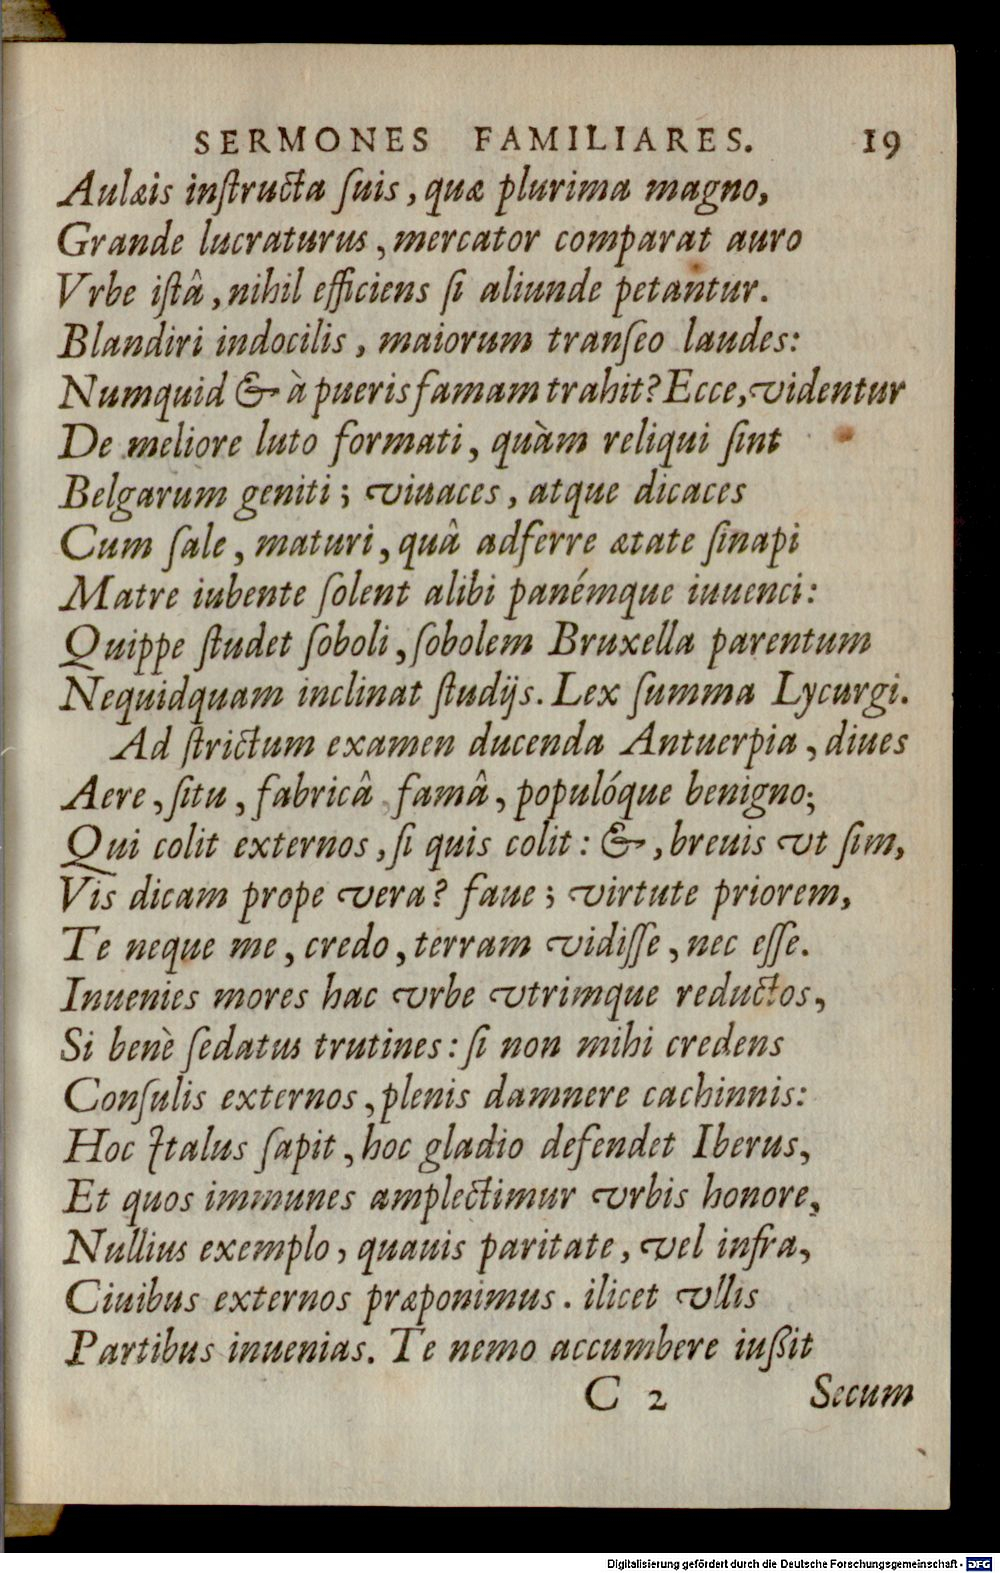 SERMONES FAMILIARES. 19
Aulæis inſtructa ſuis, quæ plurima magno,
Grande lucraturus, mercator comparat auro
Vrbe iſtâ, nihil efficiens ſi aliunde petantur.
Blandiri indocilis, maiorum tranſeo laudes:
Numquid & à pueris famam trahit? Ecce, videntur
De meliore luto formati, quàm reliqui ſint
Belgarum geniti; viuaces, atque dicaces
Cum ſale, maturi, quâ adferre ætate ſinapi
Matre iubente ſolent alibi panémque iuuenci:
Quippe ſtudet ſoboli, ſobolem Bruxella parentum
Nequidquam inclinat ſtudijs. Lex ſumma Lycurgi.
Ad ſtrictum examen ducenda Antuerpia, diues
Aere, ſitu, fabricâ famâ, populóque benigno;
Qui colit externos, ſi quis colit: &, breuis vt ſim,
Vis dicam prope vera? faue; virtute priorem,
Te neque me, credo, terram vidiſſe, nec eſſe.
Inuenies mores hac vrbe vtrimque reductos,
Si benè ſedatus trutines: ſi non mihi credens
Conſulis externos, plenis damnere cachinnis:
Hoc Italus ſapit, hoc gladio defendet Iberus,
Et quos immunes amplectimur vrbis honore,
Nullius exemplo, quauis paritate, vel infra,
Ciuibus externos præponimus. ilicet vllis
Partibus inuenias. Te nemo accumbere iuſſit
C 2 Secum
Digitalisierung gefördert durch die Deutsche Forschungsgemeinschaft - DFG